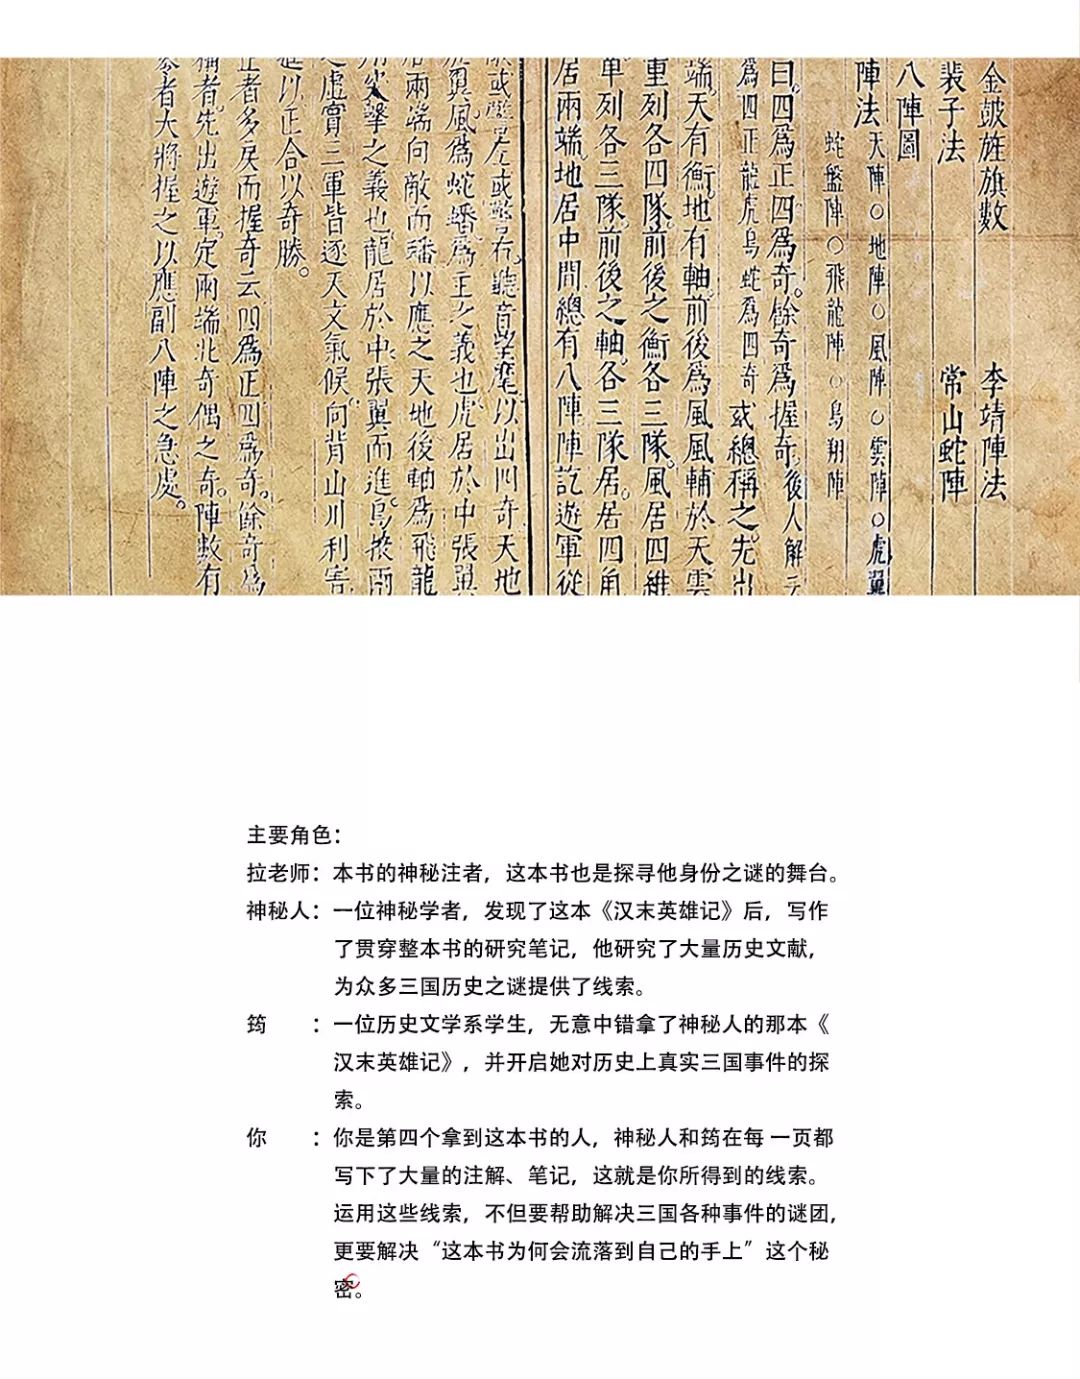 金鼓旌旗數 李靖陣法
裴子法 常山蛇陣
八陣圖
陣法 天陣○地陣○風陣○雲陣○虎翼
蛇盤陣○飛龍陣○鳥翔陣
曰四爲正四爲奇。餘奇爲握奇。後人解云
爲四正龍虎鳥蛇爲四奇。或總稱之。先出
端。天有衝。地有軸。前後爲風。風輔於天。雲
重列各四隊。前後之衝各三隊。風居四維
單列各三隊。前後之軸。各三隊。居。居四角
居兩端。地居中間。總有八陣。陣訖。遊軍從
或警左或警右。聽音望麾。以出四奇。天地
翼。風爲蛇蟠。爲主之義也。虎居於中。張翼
兩端。向敵而蟠。以應之。天地後軸爲飛龍
突擊之義也。龍居於中。張翼而進。鳥掖兩
虛實。三軍皆逐天文氣候。向背山川利害
進。以正合以奇勝。
正者多戾而握奇云。四爲正。四爲奇。餘奇爲
稱者。先出遊軍。定兩端。此奇偶之奇。陣數有
參者。大將握之。以應副八陣之急處。
主要角色：
拉老师：本书的神秘注者，这本书也是探寻他身份之谜的舞台。
神秘人：一位神秘学者，发现了这本《汉末英雄记》后，写作
了贯穿整本书的研究笔记，他研究了大量历史文献，
为众多三国历史之谜提供了线索。
筠 ：一位历史文学系学生，无意中错拿了神秘人的那本《
汉末英雄记》，并开启她对历史上真实三国事件的探
索。
你 ：你是第四个拿到这本书的人，神秘人和筠在每 一页都
写下了大量的注解、笔记，这就是你所得到的线索。
运用这些线索，不但要帮助解决三国各种事件的谜团，
更要解决“这本书为何会流落到自己的手上”这个秘
密。